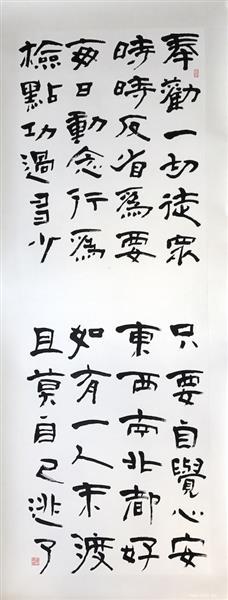 奉勸一切徒眾
時時反省為要
每日動念行為
檢點功過多少
只要自覺心安
東西南北都好
如有一人未渡
且莫自己逃了